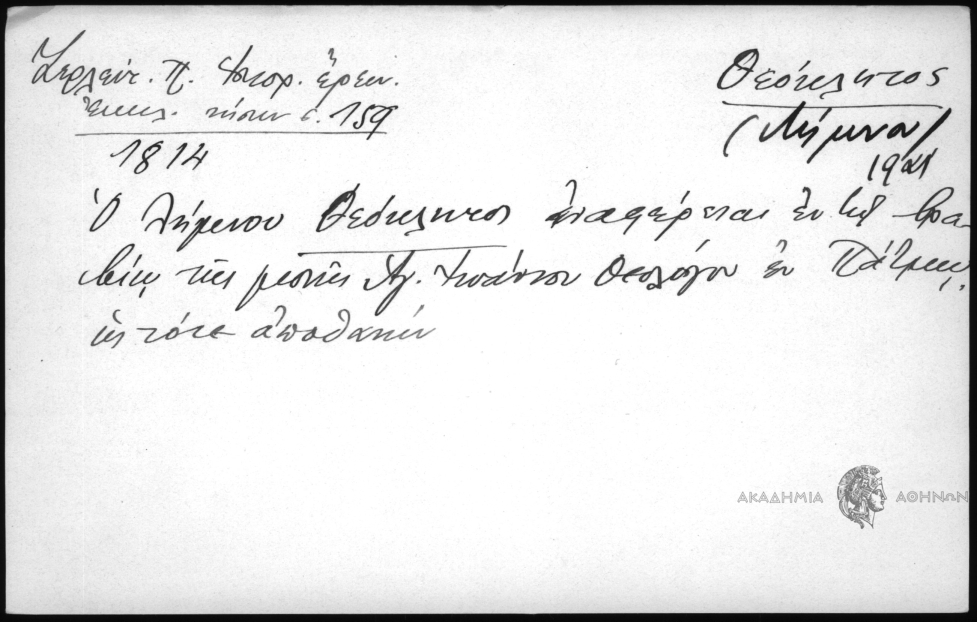 Ζερλέντ. Π. Ἱστορ. ἔρευν.
Ἐκκλ. νήσων σ. 159
1814
Θεόκλητος
(Λήμνου)
19
Ὁ Λήμνου Θεόκλητος ἀναφέρεται ἐν τῷ βρα-
βίῳ τῆς μονῆς Ἁγ. Ἰωάννου Θεολόγου ἐν Πάτμῳ,
ὡς τότε ἀποθανών
ΑΚΑΔΗΜΙΑ ΑΘΗΝΩΝ